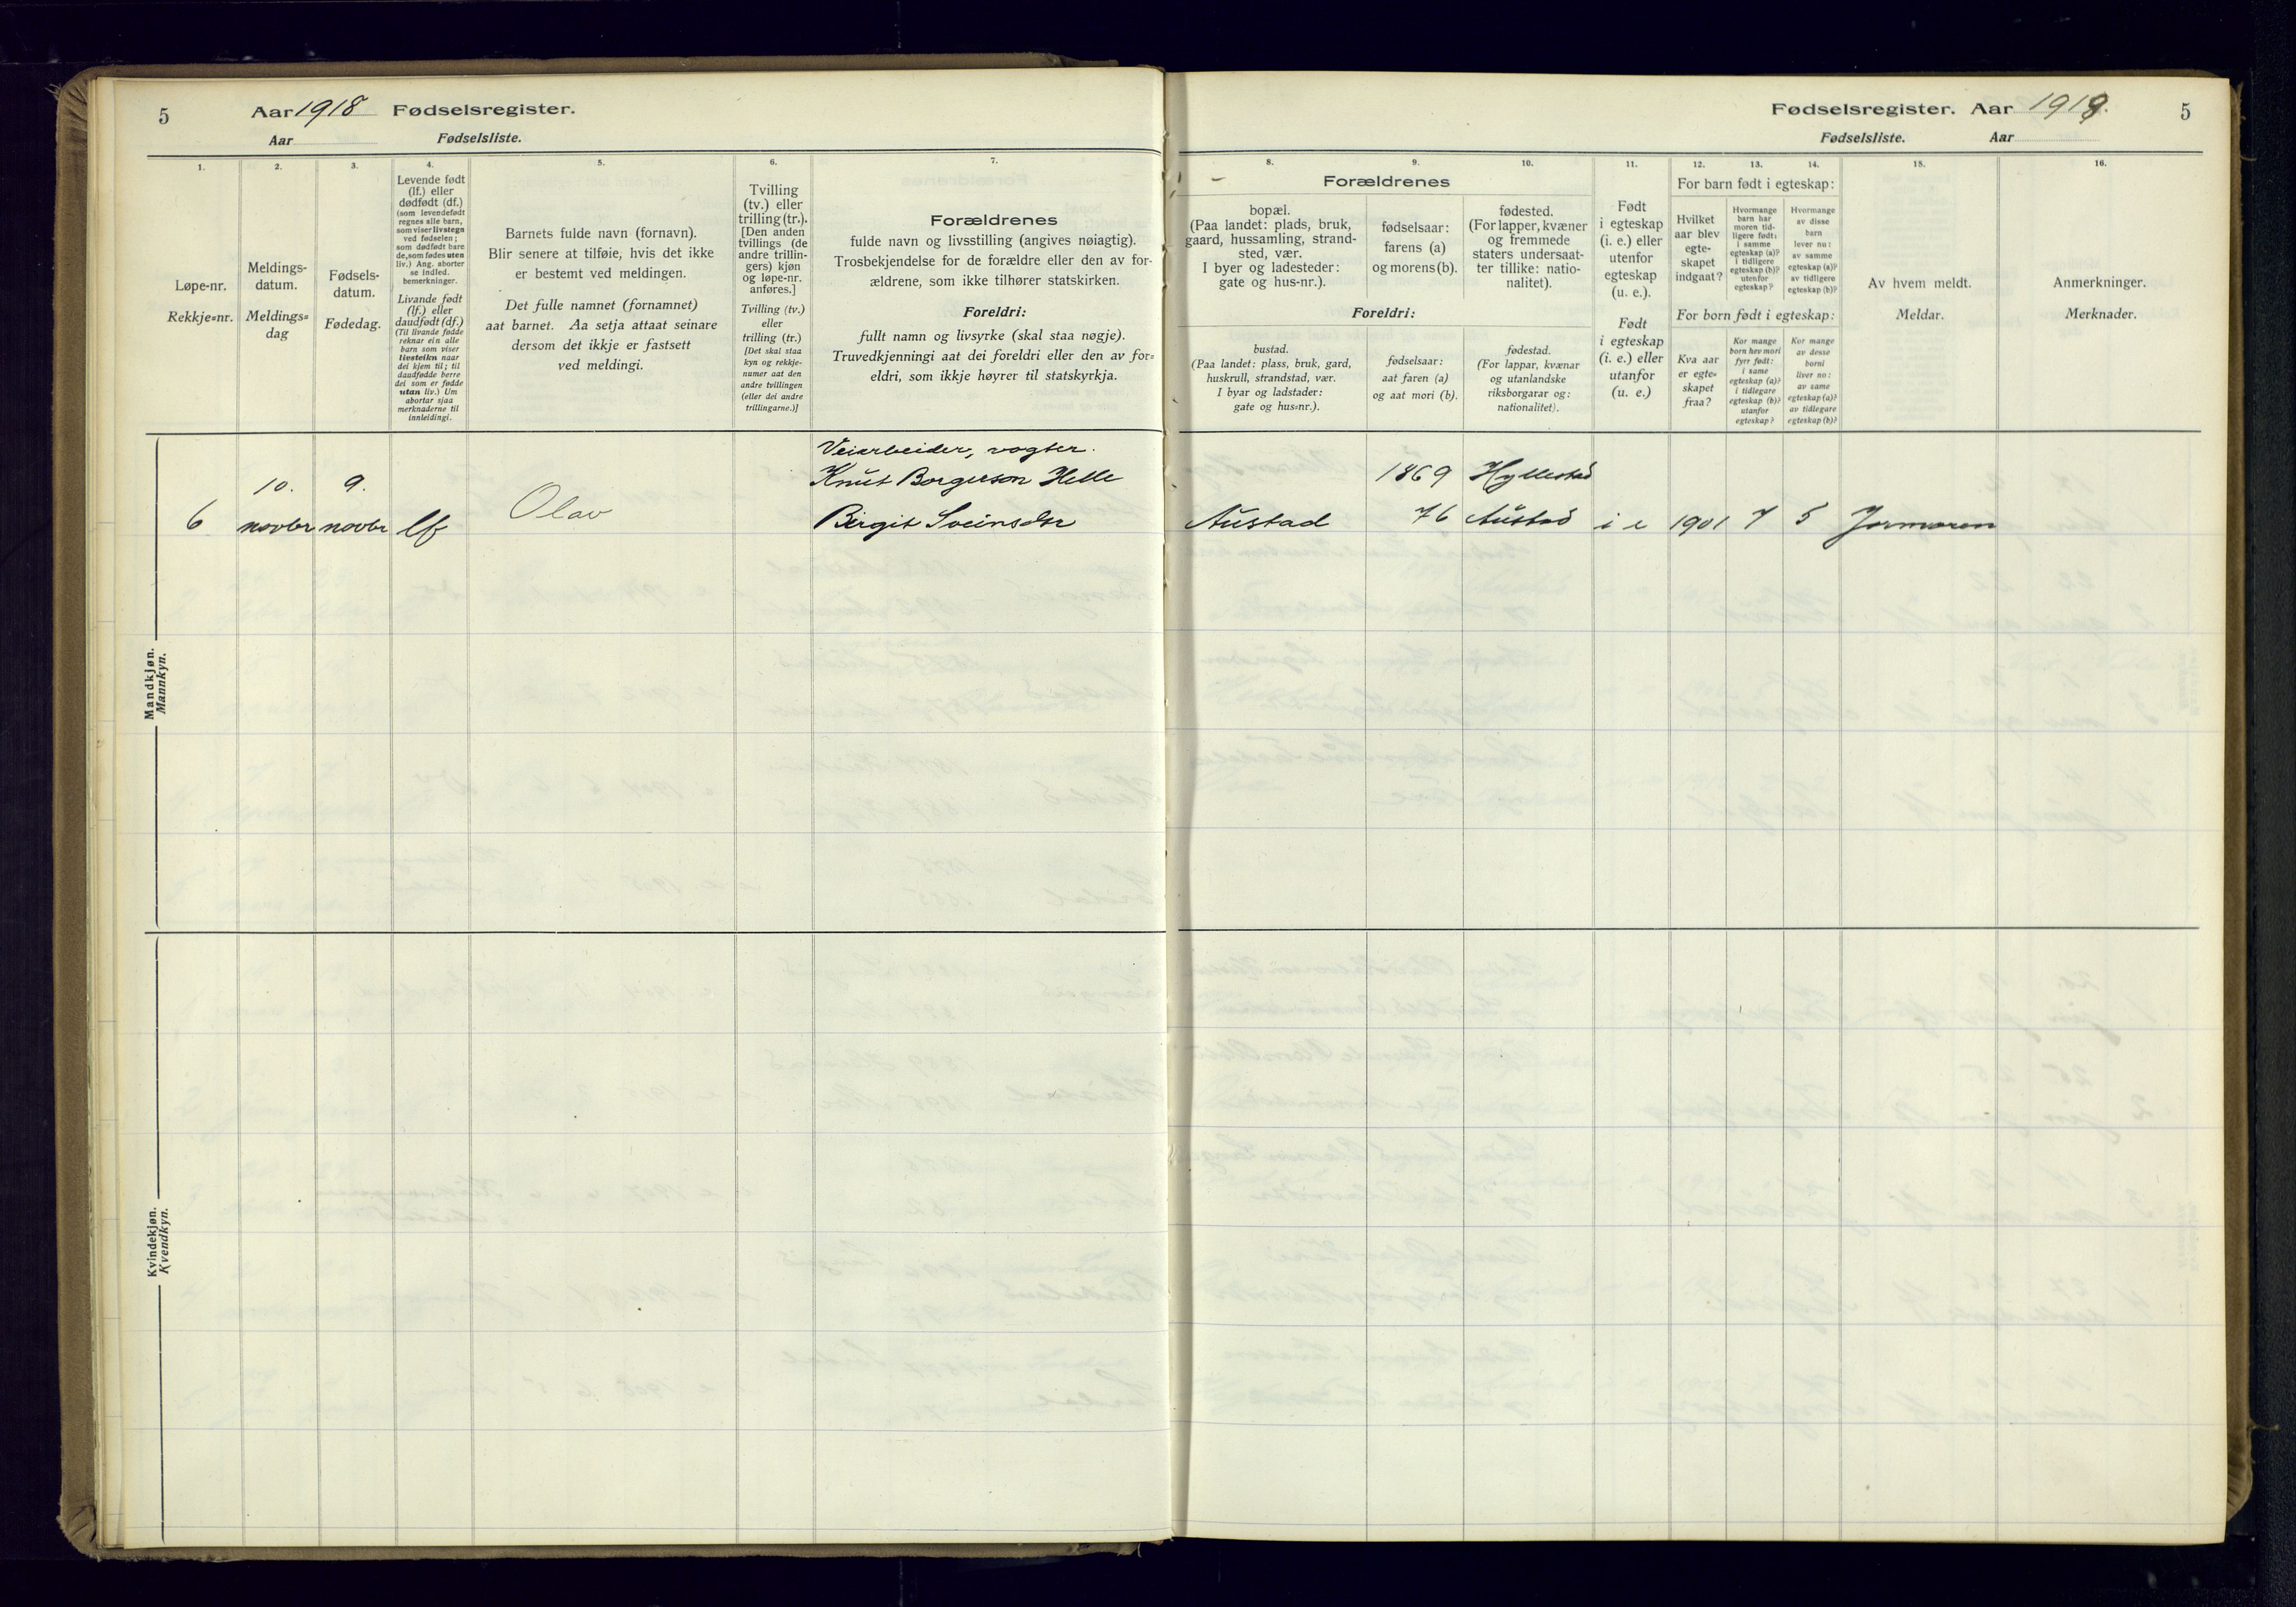 5 Aar 1918 Fødselsregister.
Aar Fødselsliste.
1. 2. 3. 4. 5. 6. 7.
Løpe-nr.
Rekkje=nr.
Meldings-
datum.
Meldings=
dag
Fødsels-
datum.
Fødedag.
Levende født
(lf.) eller
dødfødt (df.)
(som levendefødt
regnes alle barn,
som viser livstegn
ved fødselen;
som dødfødt bare
de, som fødes uten
liv.) Ang. aborter
se indled.
bemerkninger.
Livande født
(lf.) eller
daudfødt (df.)
(Til livande fødde
reknar ein alle
barn som viser
livsteikn naar
dei kjem til; til
daudfødde berre
dei som er fødde
utan liv.) Um
abortar sjaa
merknaderne til
innleidingi.
Barnets fulde navn (fornavn).
Blir senere at tilføie, hvis det ikke
er bestemt ved meldingen.
Det fulle namnet (fornamnet)
aat barnet. Aa setja attaat seinare
dersom det ikkje er fastsett
ved meldingi.
Tvilling
(tv.) eller
trilling (tr.).
[Den anden
tvillings (de
andre trillin-
gers) kjøn
og løpe-nr.
anføres.]
Tvilling (tv.)
eller
trilling (tr.)
[Det skal staa
kyn og rekkje-
numer aat den
andre tvillingen
(eller dei andre
trillingarne.)]
Forældrenes
fulde navn og livsstilling (angives nøiagtig).
Trosbekjendelse for de forældre eller den av for-
ældrene, som ikke tilhører statskirken.
Foreldri:
fullt namn og livsyrke (skal staa nøgje).
Truvedkjenningi aat dei foreldri eller den av for=
eldri, som ikkje høyrer til statskyrkja.
Mandkjøn.
Mannkyn.
Veiarbeider, vogter.
10. 9. Knut Borgerson Helle
6 novbr novbr lf Olav Birgit Sveinsdtr
Kvindekjøn.
Kvendkyn.
Fødselsregister. Aar 1918. 5
Fødselsliste. Aar
8. 9. 10. 11. 12. 13. 14. 15. 16.
Forældrenes
bopæl.
(Paa landet: plads, bruk,
gaard, hussamling, strand-
sted, vær.
I byer og ladesteder:
gate og hus-nr.).
fødselsaar:
farens (a)
og morens (b).
fødested.
(For lapper, kvæner
og fremmede
staters undersaat-
ter tillike: natio-
nalitet).
Foreldri:
bustad.
(Paa landet: plass, bruk, gard,
huskrull, strandstad, vær.
I byar og ladstader:
gate og hus=nr.).
fødselsaar:
aat faren (a)
og aat mori (b).
fødestad.
(For lappar, kvænar
og utanlandske
riksborgarar og:
nationalitet).
Født
i egteskap
(i. e.) eller
utenfor
egteskap
(u. e.).
Født
i egteskap
(i. e.) eller
utanfor
(u. e.)
For barn født i egteskap:
Hvilket
aar blev
egte-
skapet
indgaat?
Hvormange
barn har
moren tid-
ligere født:
i samme
egteskap (a)?
i tidligere
egteskap (b)?
utenfor
egteskap?
Hvormange
av disse
barn
lever nu:
av samme
egteskap (a)?
av tidligere
egteskap (b)?
For born født i egteskap:
Kva aar
er egte=
skapet
fraa?
Kor mange
born hev mori
fyrr født:
i same
egteskap (a)?
i tidlegare
egteskap (b)?
utanfor
egteskap?
Kor mange
av desse
borni
liver no:
av same
egteskap (a)?
av tidlegare
egteskap (b)?
Av hvem meldt.
Meldar.
Anmerkninger.
Merknader.
1869 Hyllestad
Austad 76 Austad i e 1901 7 5 Jormoren